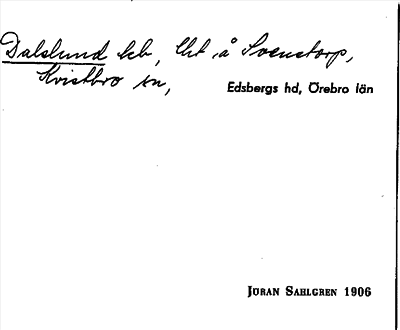 Dalslund lch, lht å Svenstorp,
Kvistbro sn,
Edsbergs hd, Örebro län
Jöran Sahlgren 1906